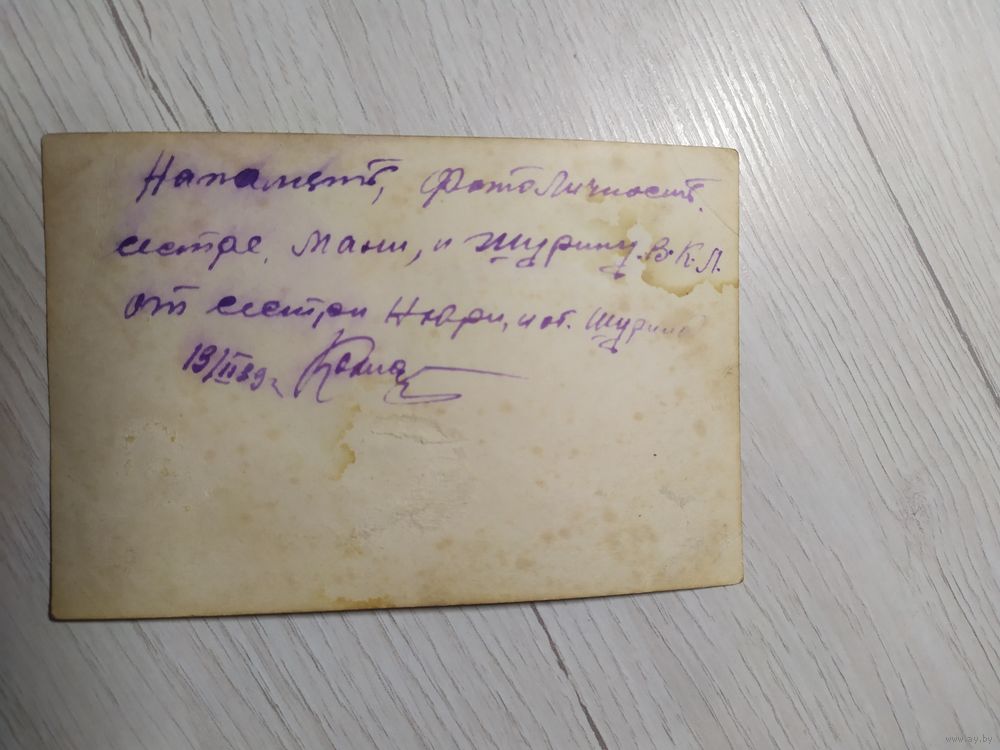 На память, фотоличность.
сестре, Мани, и Шурину. В. К. Л.
от сестри Нюри, и от. Шурина
19/II 39 г.
www.ay.by